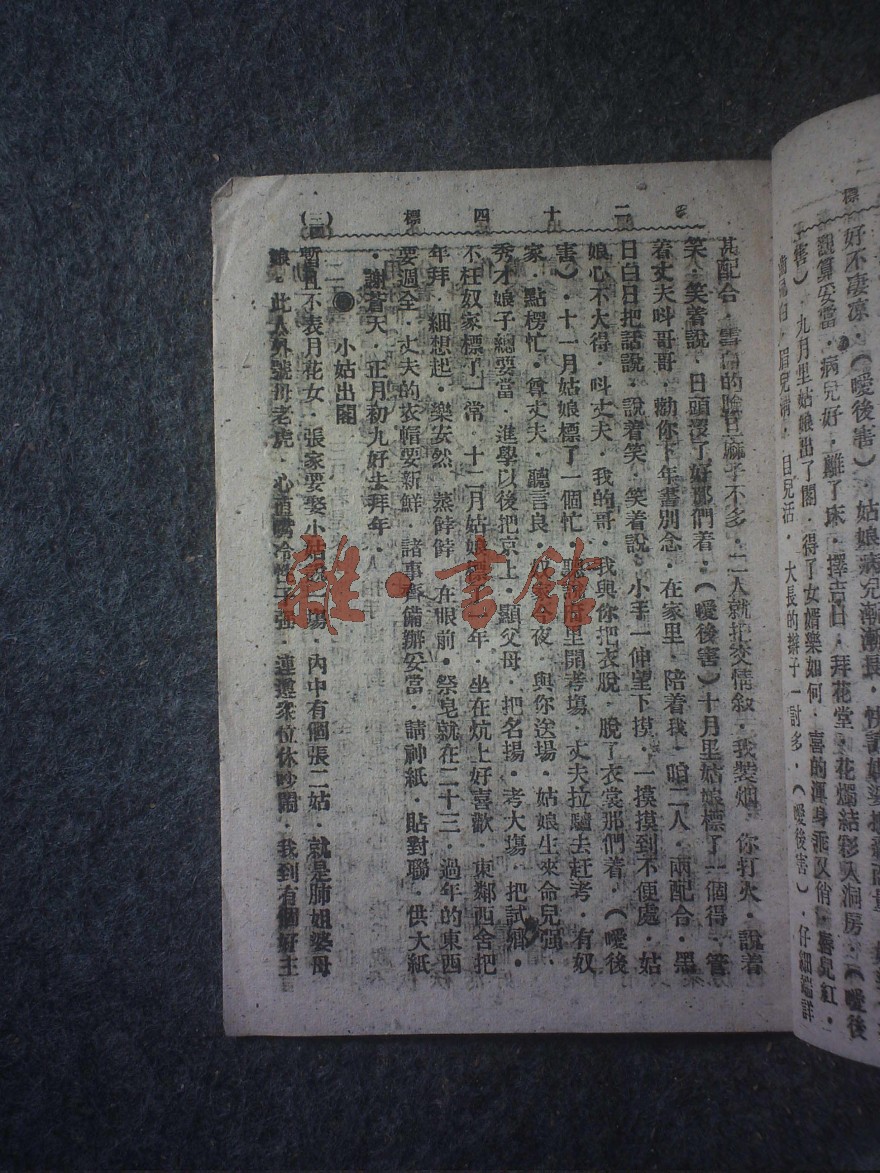 二十四標
（三）
甚配合．雪白的臉旦麻子不多．二人就把交情敘．我裝烟．你打火．說着
笑．笑着說．日頭沒了好那們着．(噯後害)十月里姑娘標了一個得．管
着丈夫呌哥哥．勸你下年書別念．在家里．陪着我．咱二人．兩配合．黑
日白日把話說．說着笑．笑着說．小手一伸望下摸．一摸摸到不便處．姑
娘心不大得．呌丈夫．我的哥．我與你把衣脫．脫了衣裳那們着．(噯後
害)．十一月姑娘標了一個忙．聽說府里開考場．丈夫拉驢去赶考．有奴
家．點楞忙．尊丈夫．聽言良．奴家今夜．與你送場．姑娘生來命兒强．
秀才娘子總要當．進學以後把京上．顯父母．把名揚．考大場．把試
不枉奴家標了一常．十二月姑娘標一年．坐在炕上好喜歡．東鄰西舍把
年拜．細想起．樂安然．蒸餑餑．在眼前．祭皂就在二十三．過年的東西
要週全．丈夫的衣帽要新鮮．諸事齊備辦妥當．請神紙．貼對聯．供大紙
．謝蒼天．正月初九好去拜年．
二 小姑出閣
暫且不表月花女．張家要娶小姑說一場．內中有個張二姑．就是肺姐婆母
娘．此人外號母老虎．心直嘴冷性子强．連連衆位休吵鬧．我到有個好主
雜·書館
標
好不凄凉．(噯後害)．姑娘病兒漸漸長．
說算妥當．病兒好．離了床．擇吉日．拜花堂．花燭結彩入洞房．(噯後
害)　九月里姑娘出了閣．得了女婿樂如何．喜的渾身乖又俏．唇兒紅．
眉兒滿．目兒活．大長的辮子一討多．(噯後害)．仔細端詳